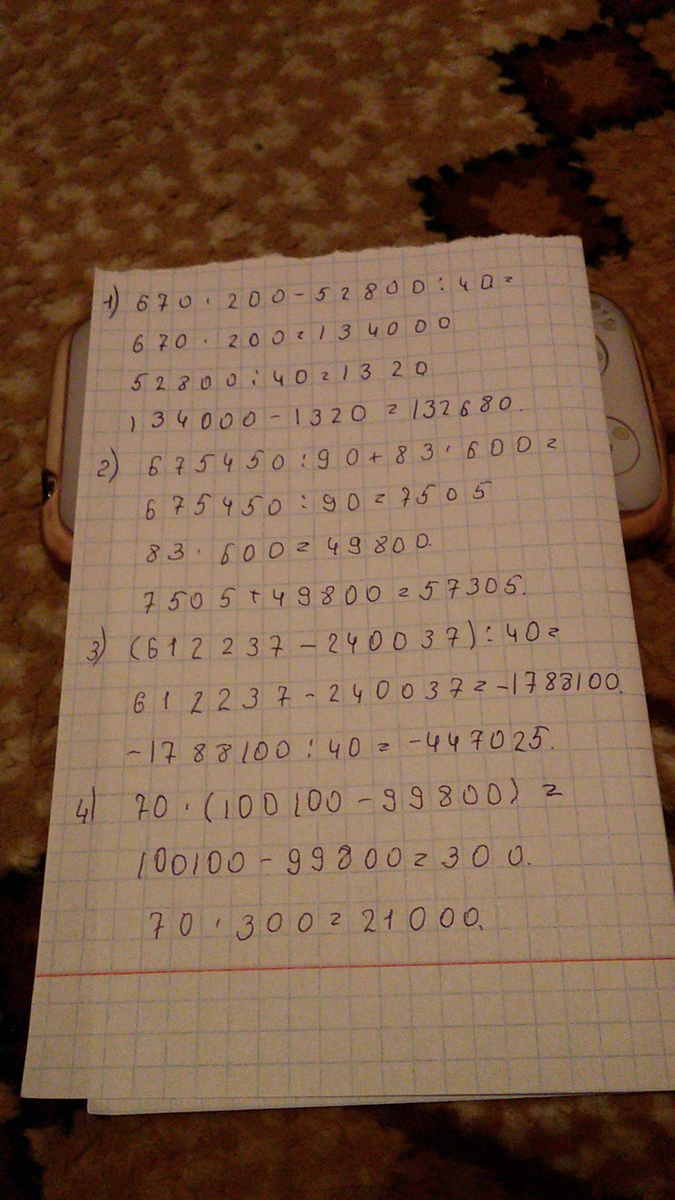 1) 670 · 200 - 52800 : 40 =
670 · 200 = 134000
52800 : 40 = 1320
134000 - 1320 = 132680.
2) 675450 : 90 + 83 · 600 =
675450 : 90 = 7505
83 · 600 = 49800.
7505 + 49800 = 57305.
3) (612237 - 240037) : 40 =
612237 - 240037 = -1788100.
-1788100 : 40 = -447025.
4) 70 · (100100 - 99800) =
100100 - 99800 = 300.
70 · 300 = 21000.